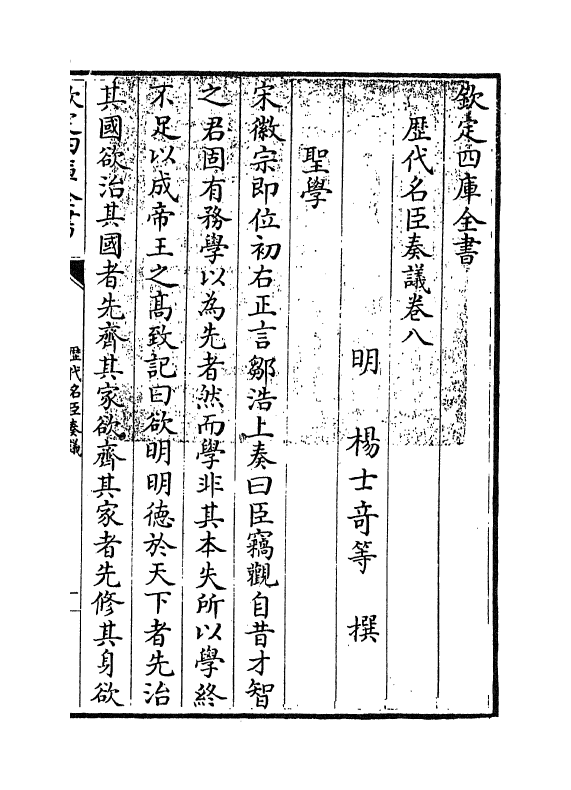 欽定四庫全書
歴代名臣奏議卷八
明 楊士竒等 撰
聖學
宋徽宗即位初右正言鄒浩上奏曰臣竊觀自昔才智
之君固有務學以為先者然而學非其本失所以學終
不足以成帝王之髙致記曰欲明明徳於天下者先治
其國欲治其國者先齊其家欲齊其家者先修其身欲
歴代名臣奏議